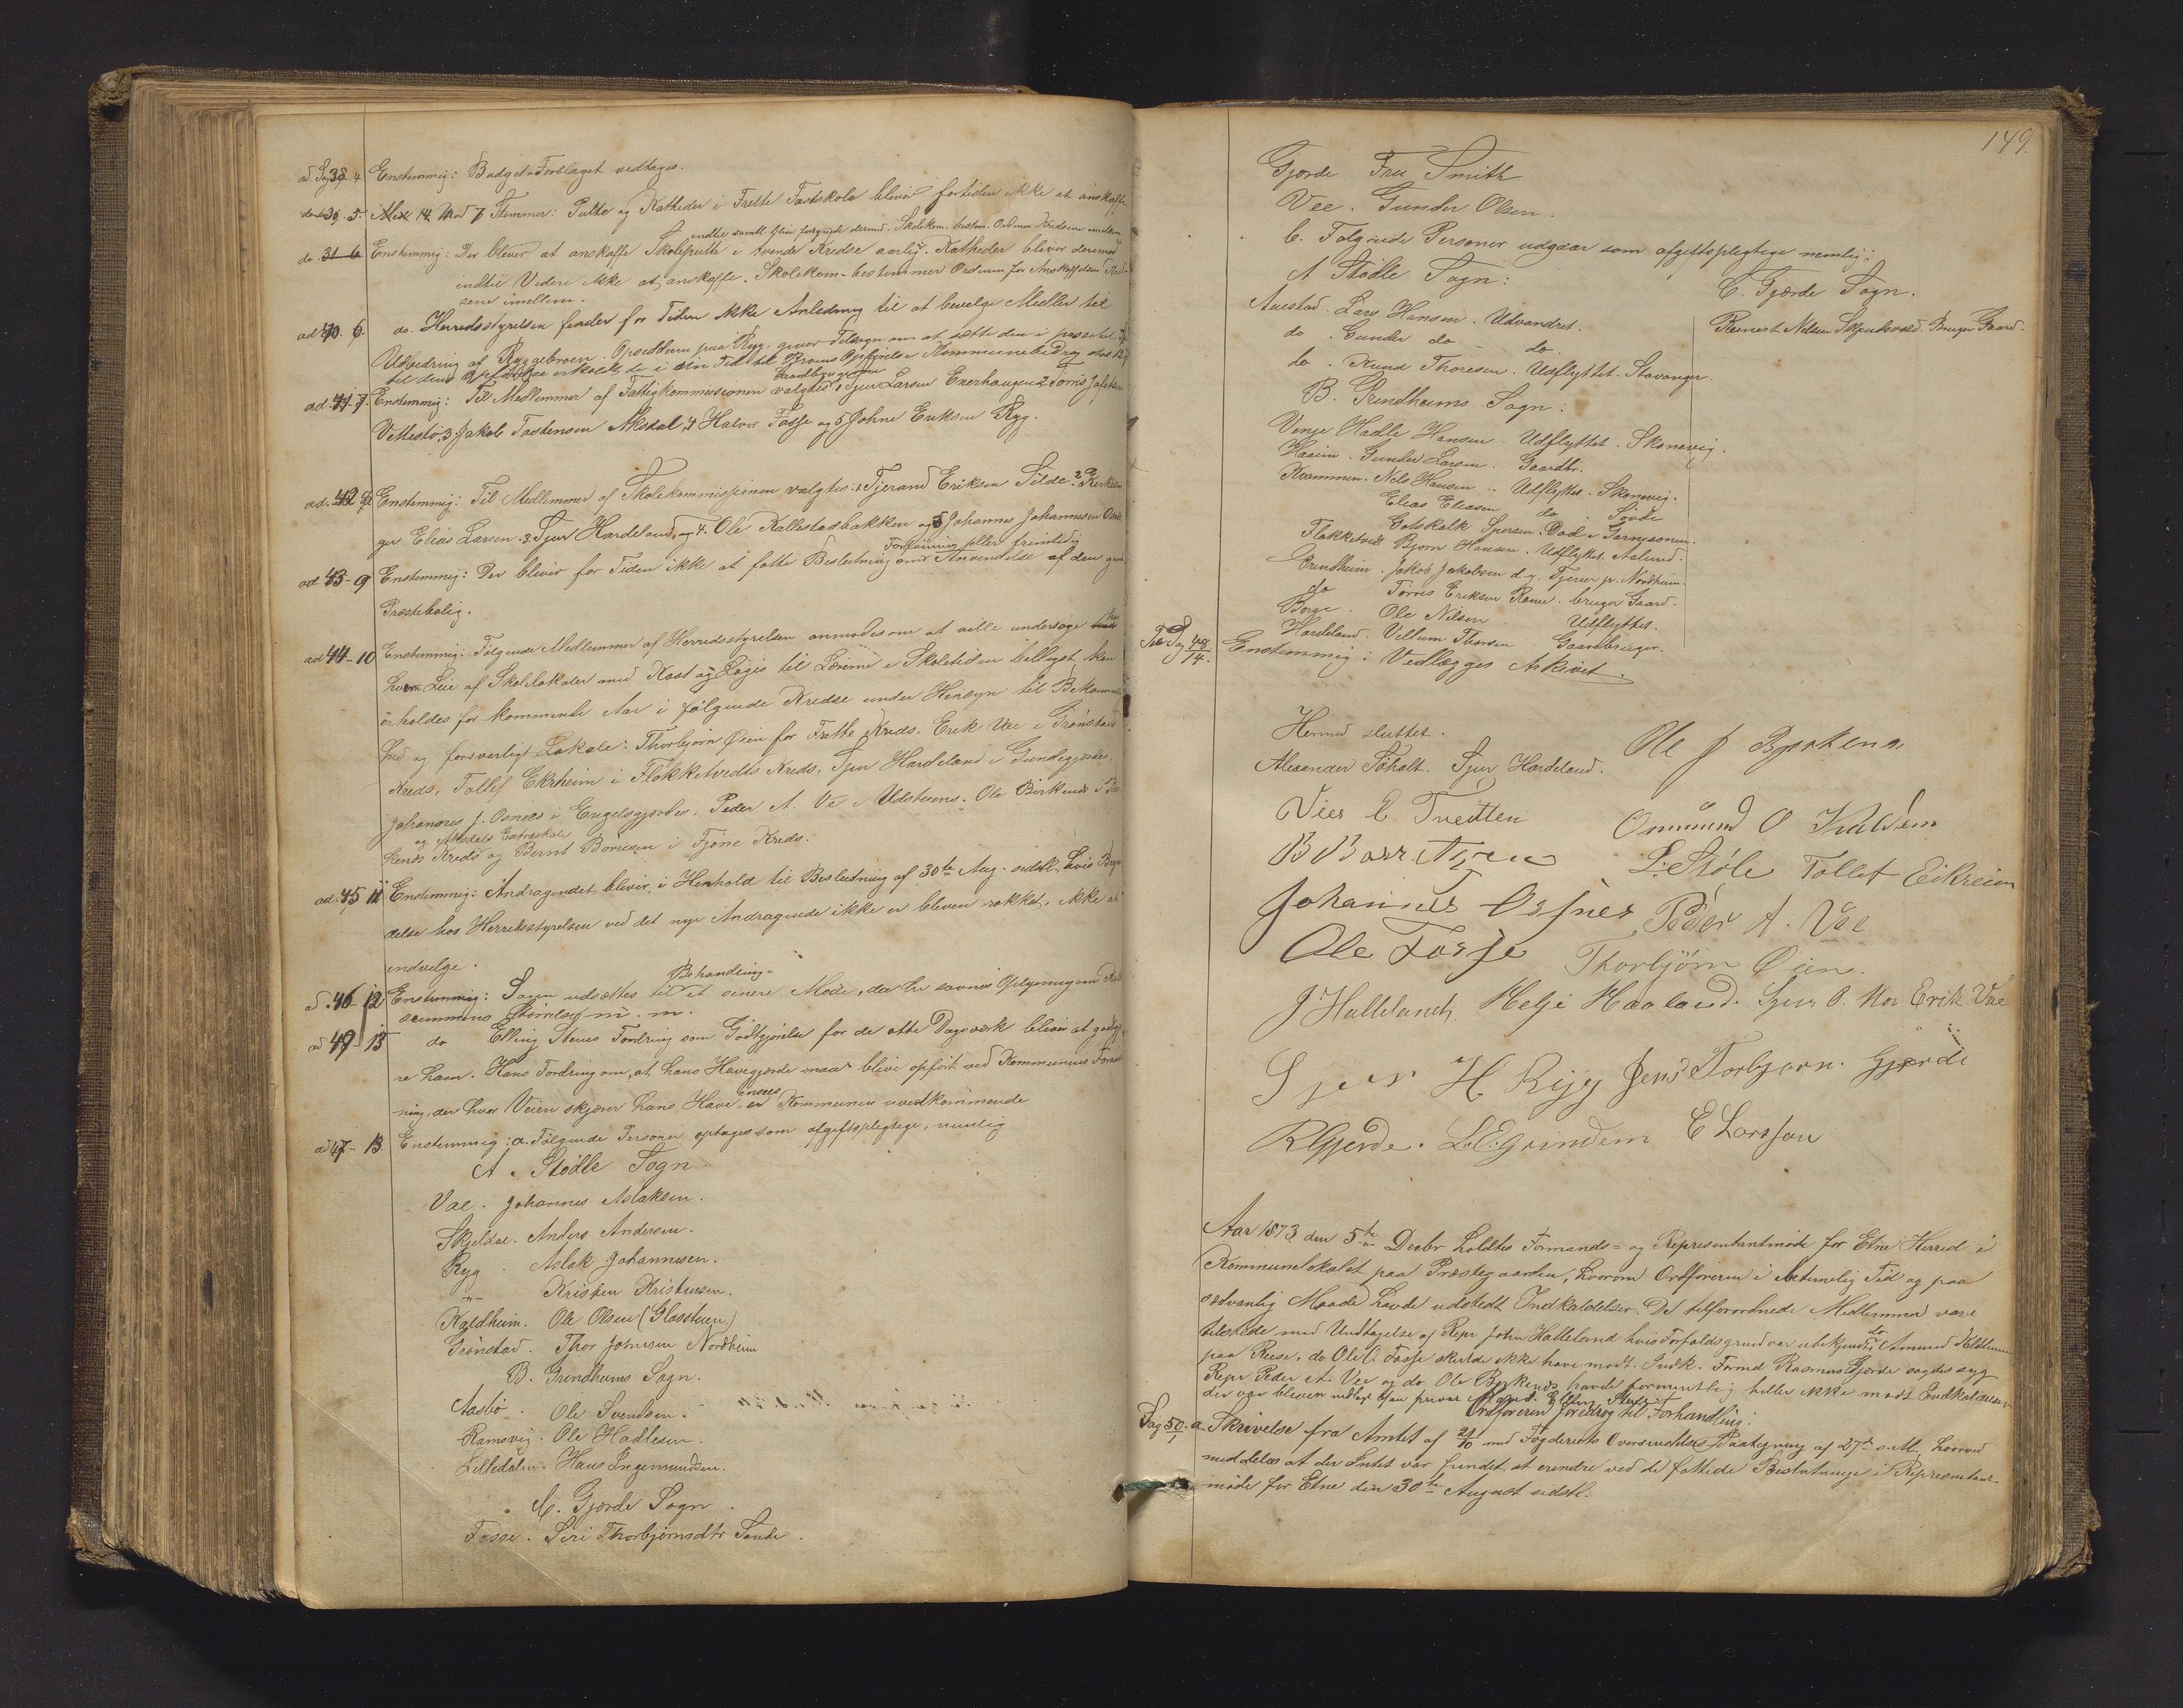 ad Sag 38 - 4 Enstemmig: Budget-Forslaget vedtages.
do 39 - 5. Med 14 Mod 7 Stemmer: Pulte og Katheder i Frette Fastskole bliver for tiden ikke at anskaffe
indtil samtl. blive forsynede dermed. Skolekom. bestem. Ordenen Kredsene imellem
do 31 - 6 Enstemmig: Der bliver at anskaffe Skolepulte i tvende Kredse aarlig. Katheder bliver derimod
indtil Videre ikke at anskaffe. Skolekom. bestemmer Ordenen for Anskaffelsen Kred-
sene imellem.
ad 40. 6. do. Herredsstyrelsen finder for Tiden ikke Anledning til at bevilge Midler til
Udbedring af Ryggebroen. Opsidderne paa Ryg giver Tilsagn om at sætte den i
til dens Opførelse erholdt de i sin Tid til Broens Opførelse Kommunebidrag stort 12
ad 41 - 7. Enstemmig: Til Medlemmer af Fattigkommissionen valgtes: 1 Sjur Larsen Enerhaugen 2 Tørris Jafetsen
Vettestø, 3 Jakob Tostensen Aksdal, 4 Halvor Fosse og 5 Johne Eriksen Ryg.
ad. 42 8. Enstemmig: Til Medlemmer af Skolekommissionen valgtes: 1 Tjerand Eriksen Silde 2. Kirkesan-
ger Elias Larsen. 3. Sjur Hardeland, og 4. Ole Kallestadbakken og 5 Johannes Johannesen Osnes
Forføining eller fremtidig
ad 43 - 9 Enstemmig: Der bliver for Tiden ikke at fatte Beslutning om Anvendelse af den gamle
Præstebolig.
ad 44 - 10 Enstemmig: Følgende Medlemmer af Herredsstyrelsen anmodes om at ville undersøge
hvem Leie af Skolelokaler med Kost og Logis til Lærerne i Skoletiden billigst kan
erholdes for kommende Aar i følgende Kredse under Hensyn til Bekvem-
hed og forsvarligt Lokale: Thorbjørn Øien for Frette Kreds, Erik Vae i Grønstads
Kreds, Tollef Ekrheim i Flokketvedts Kreds, Sjur Hardeland i Gundegjerdes,
Johannes J. Osnes i Engelsgjerdes, Peder A. Ve i Udstrens, Ole Birkenes i
og Aksdals Extraskole
kenes Kreds og Bernt Børresen i Fjøne Kreds.
ad. 45 11 Enstemmig: Andragendet bliver, i Henhold til Beslutning af 30te Aug. sidstl., hvis Begyn-
delse hos Herredsstyrelsen ved det nye Andragende ikke er bleven rokket, ikke at
indvilge.
Behandling
ad. 46 - 12 Enstemmig: Sagen udsættes til et senere Møde, da der savnes Oplysning om
summens Størrelse m. m.
ad 49 - 13 do Elling Stenes Fordring som Godtgjørelse for de otte Dagsværk bliver at godtgjø-
re ham. Hans Fordring om, at hans Havegjerde maa blive opført ved Kommunens Foranstalt-
ning, der hvor Veien skjærer hans Have ansees Kommunen uvedkommende
ad 47 - 13. Enstemmig: a. Følgende Personer optages som afgiftspligtige, nemlig
A. Stødle Sogn.
Vae. Johannes Aslaksen.
Skjeldal. Anders Andersen.
Ryg. Aslak Johannesen.
-"- Kristen Kristensen.
Kjeldheim. Ole Olsen (Glasstuen)
Grønstad. Thor Johnsen Nordheim
B. Grindheims Sogn.
Aasbø. Ole Svendsen.
Ramsvig. Ole Hadlesen.
Lilledalen. Hans Ingemundsen.
C. Gjerde Sogn.
Fosse. Siri Thorbjørnsdtr Sande.
149.
Gjerde Fru Smith
Vee. Gunder Olsen.
b. Følgende Personer udgaar som afgiftspligtige nemlig:
A Stødle Sogn:
Auestad. Lars Hansen. Udvandret.
do. Gunder do - do.
do. Knud Thoresen. Udflyttet. Stavanger.
B. Grindheims Sogn:
Vinje Hadle Hansen. Udflyttet. Skonevig.
Haaim. Gunder Larsen. Gaardbr.
Krammen. Nils Hansen. Udflyttet. Skonevig.
Elias Eliasen do. Søvde
Gotskalk Sjursen. Død i Garnisonen.
Flokketvedt Bjørn Hansen. Udflyttet. Aalund.
Grindheim. Jakob Jakobsen d.y. Tjener p. Nordheim.
do Tørres Eriksen Rame. bruger Gaard.
Borge. Ole Nilsen Udflyttet.
Hardeland. Villum Thorsen Gaardbruger.
C. Gjerde Sogn.
Reinert Nilsen Skjensvold. Bruger Gaard.
Til Sag 48/14. Enstemmig: Vedlægges Arkivet.
Hermed sluttet.
Alexander Tøholt. Sjur Hardeland. Ole J Byrkenes
Vier E Tveitten Ommund O Kvildem
B Børretzen L. Støle Tollef Eikreim
Johannes Osnes Peder A. Vae
Ole Fosse Thorbjørn Øien.
J Halleland Helje Haaland. Sjur O. Mo Erik Vae
Sjur H Ryg Jens Torbjørn. Gjerde
R Gjerde. L.E. Grindem E Larsson
Aar 1873 den 5te Decbr holdtes Formands- og Repræsentantmøde for Etne Herred i
Kommunelokalet paa Præstegaarden, hvorom Ordføreren i betimelig Tid og paa
sædvanlig Maade havde udstedt Indkaldelser. De tilforordnede Medlemmer vare
tilstede med Undtagelse af Repr John Halleland hvis Forfaldsgrund var ubekjendt, do Amund Kvildem
paa Reise, do Ole O. Fosse skulde ikke have mødt. Indk. Formd Rasmus Gjerde sagdes syg
Repr Peder A. Vee og do Ole Byrkenes havde formentlig heller ikke mødt Indkaldelsen
der var bleven
Ordføreren foredrog til Forhandling:
Sag 50/1. a Skrivelse fra Amtet af 21/10 med Fogderiets Oversendelses Paategning af 27de s. M., hvorved
meddeles at der Intet var fundet at erindre ved de fattede Beslutninger i Repræsentant-
møde for Etne den 30te August sidstl.